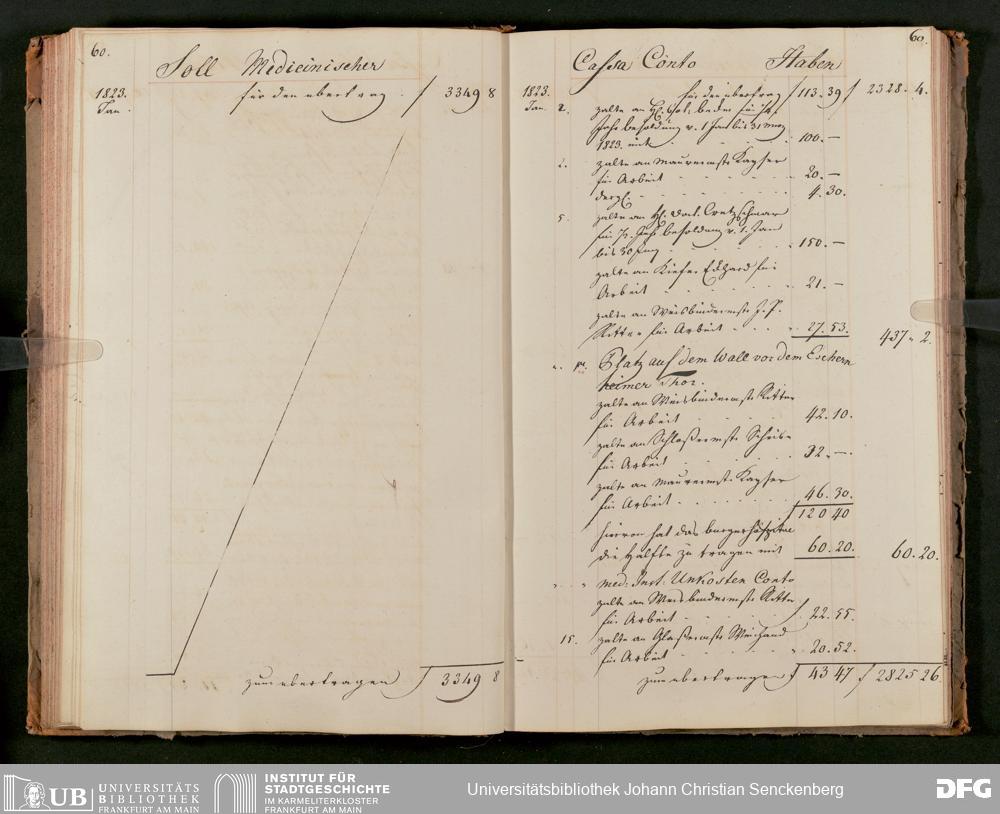 60.
Soll Medicinischer
1823.
Jan.
für den übertrag f 3349 8
zum übertragen f 3349 8
60.
Cassa Conto Haben
1823.
Jan. 2.
für den übertrag f 113.39 f 2328.4.
zalte an H.
Jahr besoldung v. 1 Jan bis 31 
1823. mit 100.—
2. zalte an Maurermstr Kayser
für Arbeit 20.—
dergl. 4.30.
5. zalte an H. Doct. Cretzschmar
für ½ Jahr besoldung v. 1. Jan
bis 30 Juny 150.—
zalte an Kiefer Eckhard für
Arbeit 21.—
zalte an Weisbindermstr J. P.
Ritter für Arbeit 27.53. 437 " 2.
" . pr. Platz auf dem Wall vor dem Eschern
heimer Thor.
zalte an Weisbindermstr Ritter
für Arbeit 42.10.
zalte an Schlossermstr
für Arbeit 32.—.
zalte an Maurermstr. Kayser
für Arbeit 46.30.
f 120 40
hiervon hat das burgerhospital
die Hälfte zu tragen mit 60.20. 60.20.
" . " med: Inst: Unkosten Conto
zalte an Weisbindermstr Ritter
für Arbeit f. 22.55.
15. zalte an Glasermstr
für Arbeit " 20.52.
zum übertragen f 43 47 f 2825 26.
UB UNIVERSITÄTS
BIBLIOTHEK
FRANKFURT AM MAIN
INSTITUT FÜR
STADTGESCHICHTE
IM KARMELITERKLOSTER
FRANKFURT AM MAIN
Universitätsbibliothek Johann Christian Senckenberg
DFG